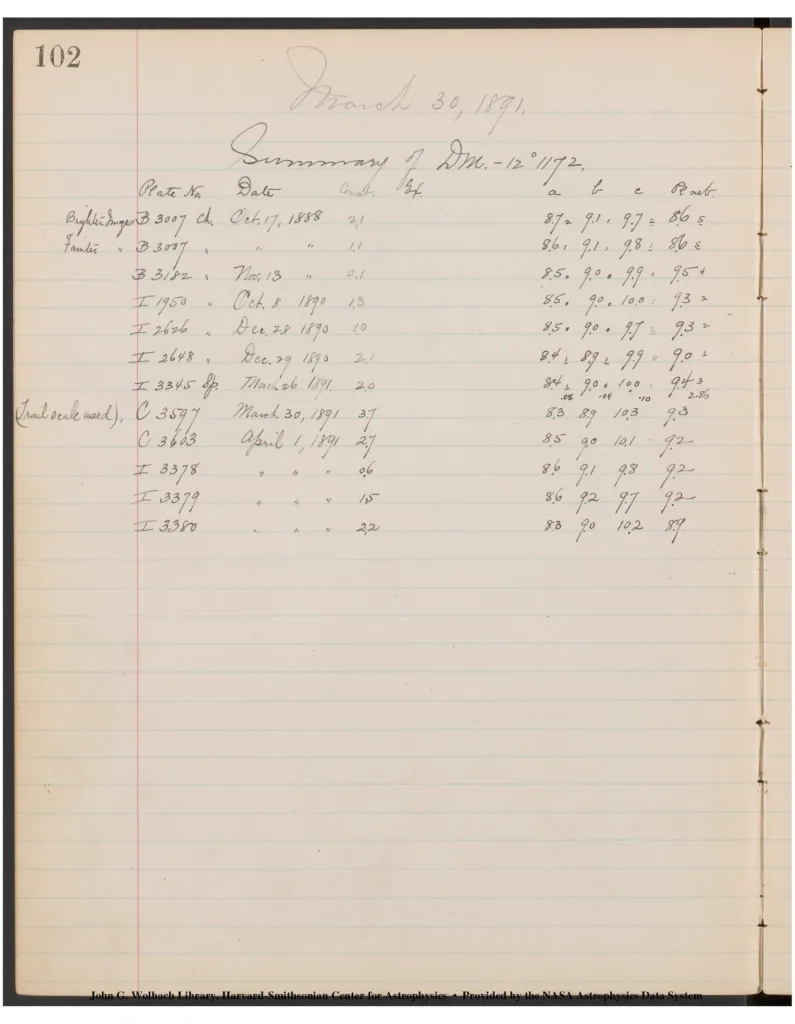 102
March 30, 1891.
Summary of DM. -12° 1172.
Plate No. Date Const. Ex. a b c Pl. neb.
Brighter Images B 3007 Ch. Oct. 17, 1888 2.1 8.7 2 9.1 1 9.7 2 8.6 5
Fainter " B 3007 " " " 1.1 8.6 1 9.1 1 9.8 1 8.6 5
B 3182 " Nov. 13 " 0.1 8.5 0 9.0 0 9.9 0 9.5 4
I 1950 " Oct. 8 1890 1.3 8.5 0 9.0 0 10.0 1 9.3 2
I 2626 " Dec. 28 1890 1.0 8.5 0 9.0 0 9.7 2 9.3 2
I 2648 " Dec. 29 1890 2.1 8.4 1 8.9 1 9.9 0 9.0 1
I 3345 Sp. March 26 1891. 2.0 8.4 1 9.0 0 10.0 1 9.4 3
.08 .04 .10 2.86
(Trail scale used). C 3597 March 30, 1891 3.7 8.3 8.9 10.3 9.3
C 3603 April 1, 1891 2.7 8.5 9.0 10.1 9.2
I 3378 " " " 0.6 8.6 9.1 9.8 9.2
I 3379 " " " 1.5 8.6 9.2 9.7 9.2
I 3380 " " " 2.2 8.3 9.0 10.2 8.9
John G. Wolbach Library, Harvard-Smithsonian Center for Astrophysics • Provided by the NASA Astrophysics Data System